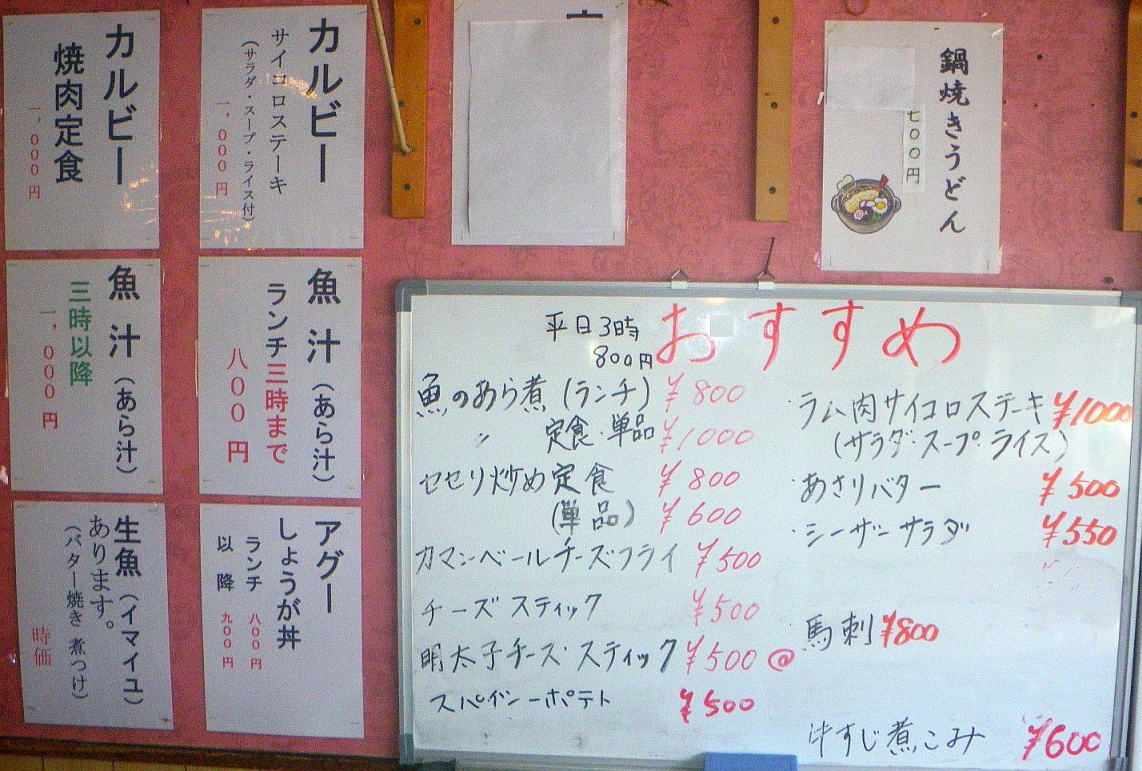 カルビー
焼肉定食
一,〇〇〇円
カルビー
サイコロステーキ
(サラダ・スープ・ライス付)
一,〇〇〇円
鍋焼きうどん
七〇〇円
魚汁(あら汁)
三時以降
一,〇〇〇円
魚汁(あら汁)
ランチ三時まで
八〇〇円
生魚(イマイユ)
あります。
(バター焼き 煮つけ)
時価
アグー
しょうが丼
ランチ 八〇〇円
以降 九〇〇円
平日3時
800円
おすすめ
魚のあら煮(ランチ) ¥800
〃 定食・単品 ¥1000
セセリ炒め定食 ¥800
(単品) ¥600
カマンベールチーズフライ ¥500
チーズスティック ¥500
明太子チーズスティック ¥500@
スパイシーポテト ¥500
・ラム肉サイコロステーキ ¥1000
(サラダ・スープ・ライス)
・あさりバター ¥500
・シーザーサラダ ¥550
馬刺 ¥800
牛すじ煮こみ ¥600